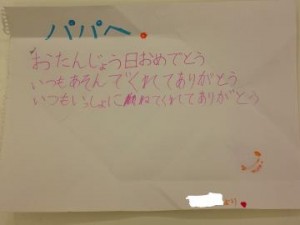 パパへ
おたんじょう日おめでとう
いつもあそんでくれてありがとう
いつもいっしょにねてくれてありがとう
より